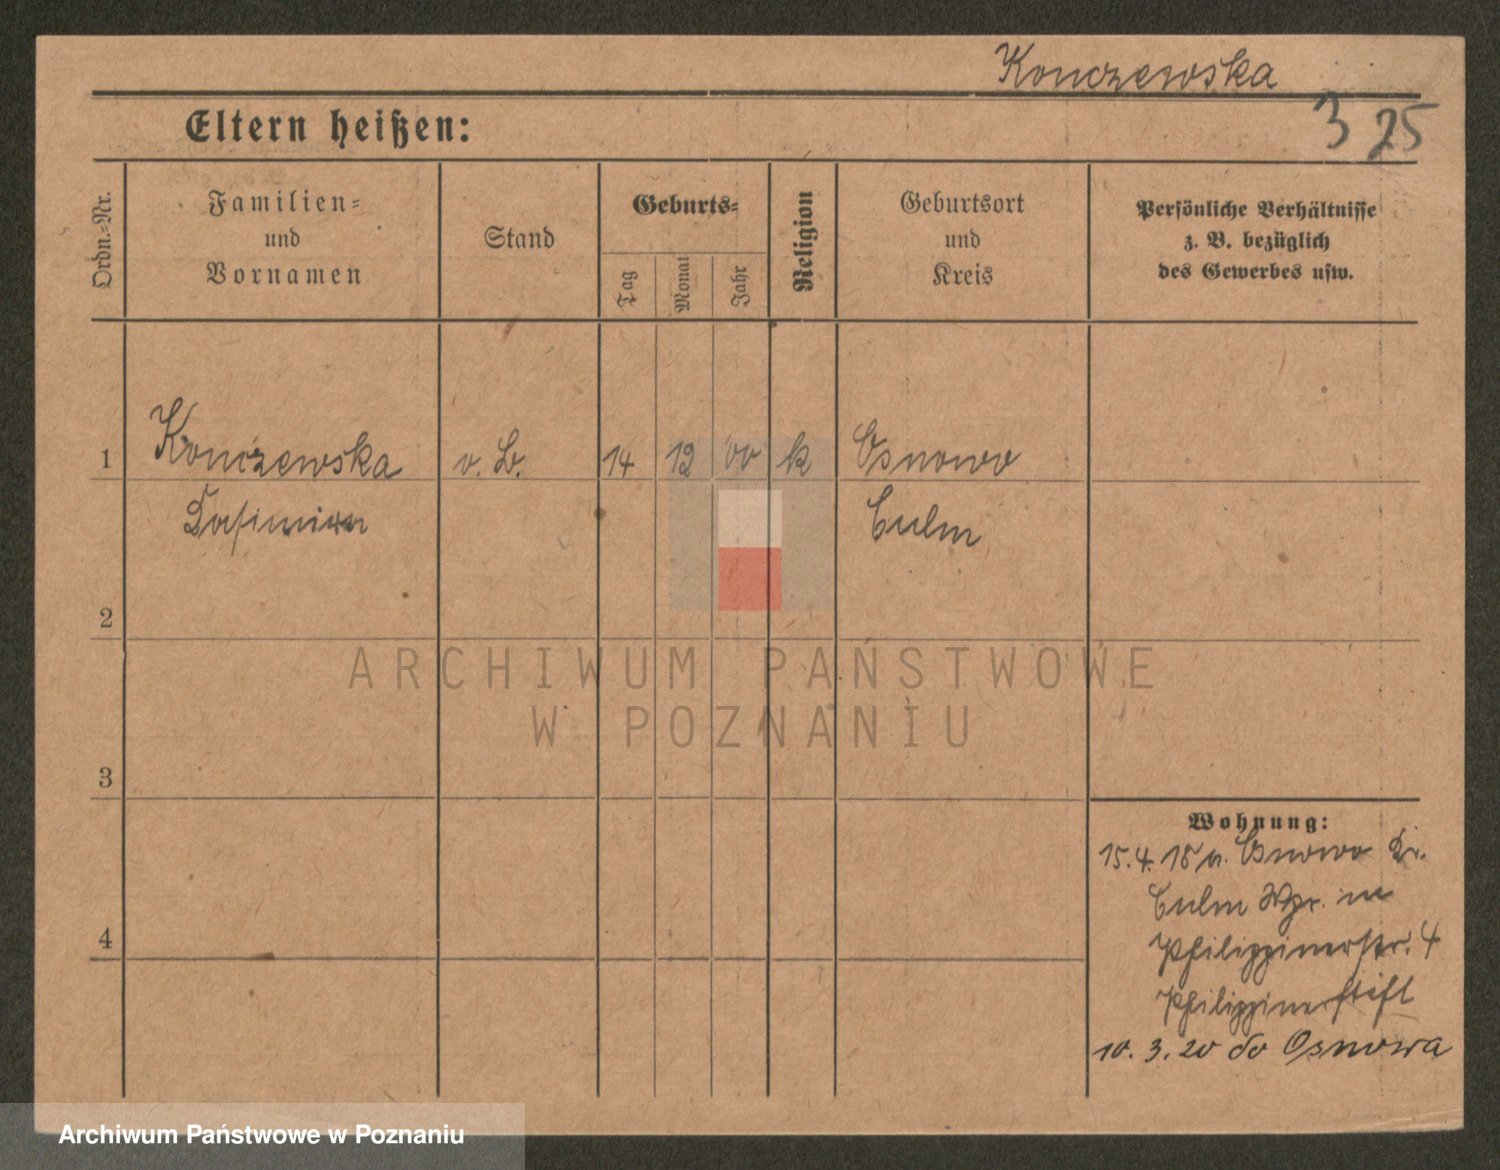 Konczewska
3 25
Eltern heißen:
Ordn.-Nr.
Familien-
und
Vornamen
Stand
Geburts-
Tag
Monat
Jahr
Religion
Geburtsort
und
Kreis
Persönliche Verhältnisse
z. B. bezüglich
des Gewerbes usw.
1 Konczewska o. B. 14 12 00 k Osnowo
Culm
2
3
4
Wohnung:
15.4.18 v. Osnowo Kr.
Culm Wpr. in
Philippinerstr. 4
Philippinerstift
10.3.20 do Osnowa
ARCHIWUM PAŃSTWOWE
W POZNANIU
Archiwum Państwowe w Poznaniu